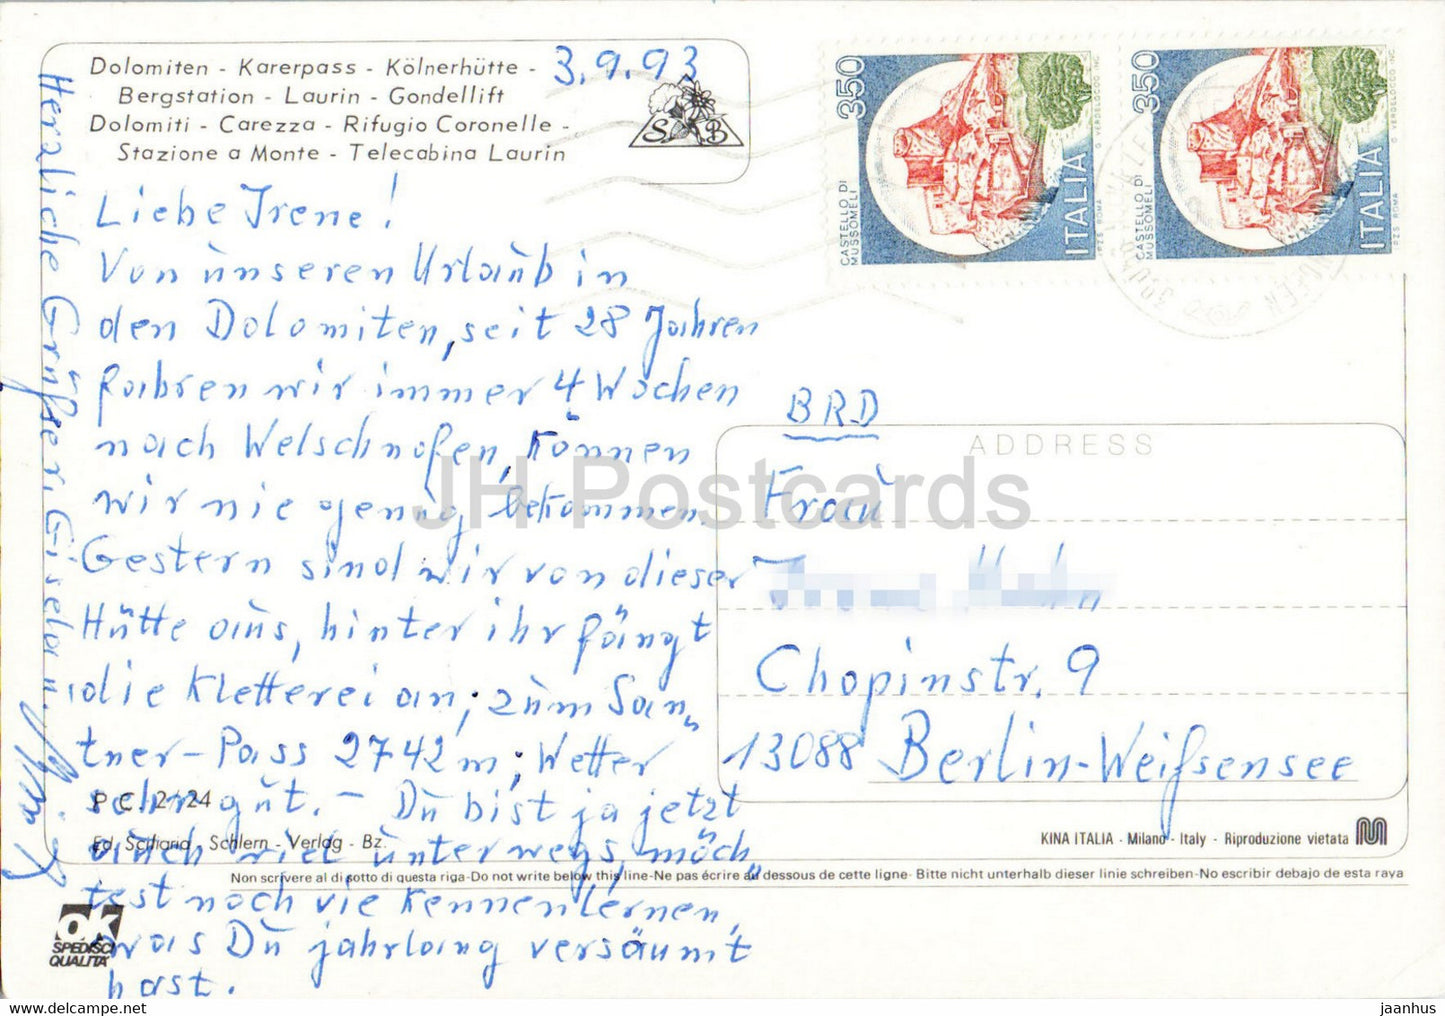 Dolomiten - Karerpass - Kölnerhütte -
Bergstation - Laurin - Gondellift
Dolomiti - Carezza - Rifugio Coronelle -
Stazione a Monte - Telecabina Laurin
3.9.93
S B
Liebe Irene!
Von unseren Urlaub in
den Dolomiten, seit 28 Jahren
fahren wir immer 4 Wochen
nach Welschnofen, können
wir nie genug bekommen.
Gestern sind wir von dieser
Hütte aus, hinter ihr fängt
die Kletterei an; zum San„
tner-Pass 2742 m; Wetter
sehr gut. - Du bist ja jetzt
auch viel unterwegs, möch„
test noch vie kennenlernen,
was Du jahrlang versäumt
hast.
Herzliche Grüße i. Gisela u.
350
CASTELLO DI
MUSSOMELI
ITALIA
IPZS ROMA
G. VERDELOCCO INC.
350
CASTELLO DI
MUSSOMELI
ITALIA
IPZS ROMA
G. VERDELOCCO INC.
BRD
ADDRESS
Frau
Chopinstr. 9
13088 Berlin-Weißensee
JH Postcards
P C 2124
Ed. Sciliaria - Schlern - Verlag - Bz.
KINA ITALIA - Milano - Italy - Riproduzione vietata
Non scrivere al di sotto di questa riga-Do not write below this line-Ne pas écrire au dessous de cette ligne- Bitte nicht unterhalb dieser linie schreiben-No escribir debajo de esta raya
ok
SPEDISCI
QUALITÀ
jaanhus